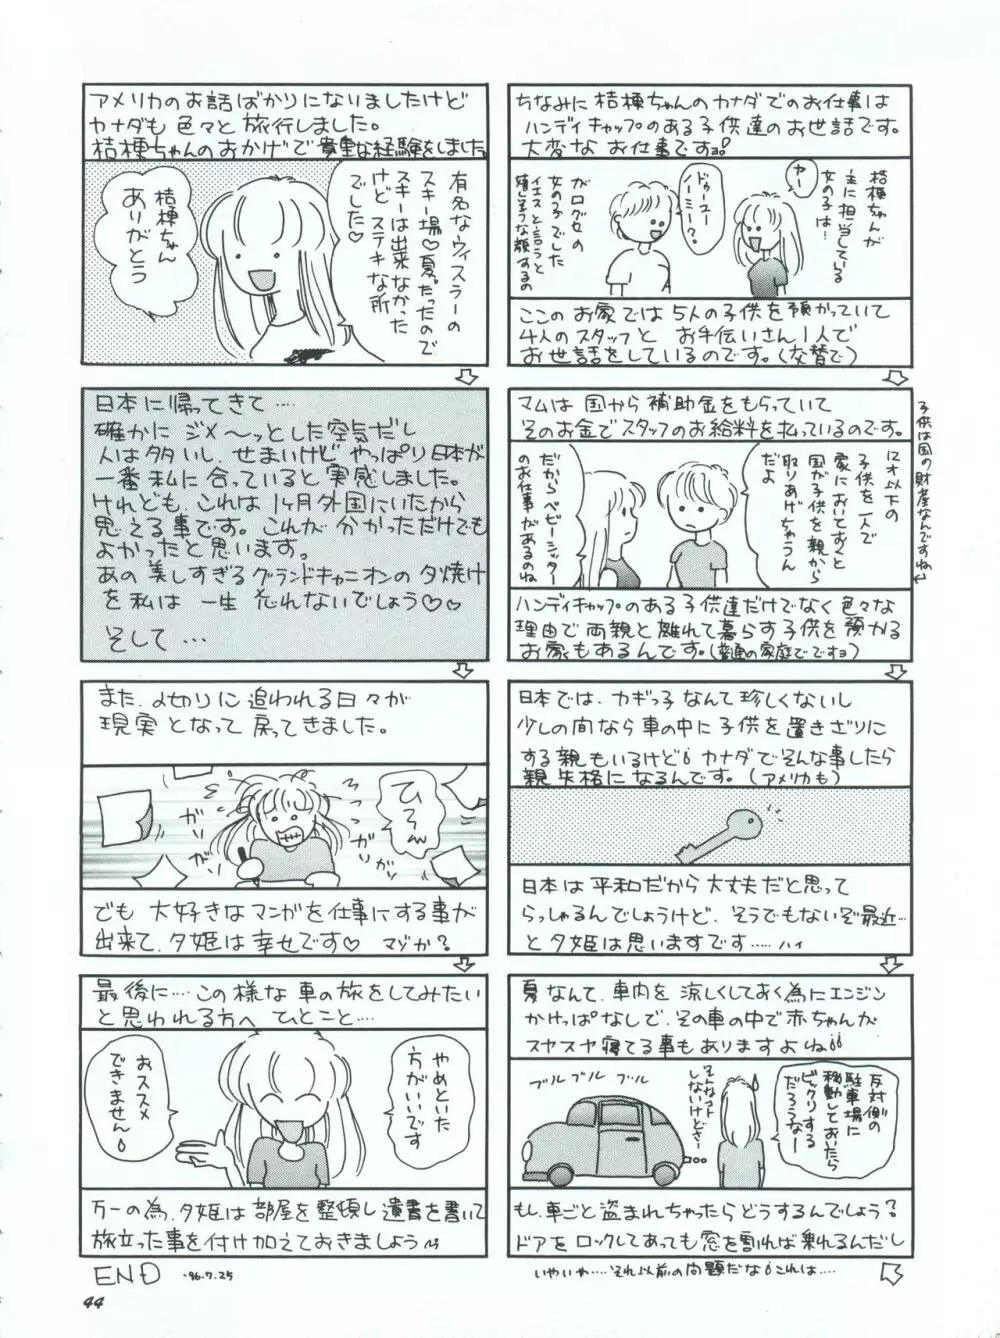 ちなみに桔梗ちゃんのカナダでのお仕事は
ハンディキャップのある子供達のお世話です。
大変なお仕事ですョ。
桔梗ちゃんが
主に担当している
女の子は…
ヤー
ドゥーユー
ノーミー?
がログセの
女の子でした
イエスと言うと
嬉しそうな顔するの
ここのお家では5人の子供を預かっていて
4人のスタッフと お手伝いさん1人で
お世話をしているのです。(交替で)
マムは国から補助金をもらっていて
そのお金でスタッフのお給料を払っているのです。
12才以下の
子供を一人で
家においておくと
国が子供を親から
取りあげちゃうん
だよ
だからベビーシッター
のお仕事があるのね
子供は国の財産なんですね
ハンディキャップのある子供達だけでなく色々な
理由で両親と離れて暮らす子供を預かる
お家もあるんです。(普通の家庭でですョ)
日本では、カギっ子なんて珍しくないし
少しの間なら車の中に子供を置きざりに
する親もいるけど カナダでそんな事したら
親失格になるんです。(アメリカも)
日本は平和だから大丈夫だと思って
らっしゃるんでしょうけど、そうでもないぞ最近…
と夕姫は思いますです……ハイ
夏なんて、車内を涼しくしておく為にエンジン
かけっぱなしで、その車の中で赤ちゃんが
スヤスヤ寝てる事もありますよね
反対側の
駐車場に
移動しておいたら
ビックリする
だろうなー
そんなコト
しないけどさ…
ブルブルブル
もし、車ごと盗まれちゃったらどうするんでしょう?
ドアをロックしてあっても窓を割れば乗れるんだし
いやいや……それ以前の問題だな これは……
アメリカのお話ばかりになりましたけど
カナダも色々と旅行しました。
桔梗ちゃんのおかげで貴重な経験をしました。
有名なウィスラーの
スキー場♡夏だったので
スキーは出来なかった
けどステキな所
でした♡
桔梗ちゃん
ありがとう
日本に帰ってきて….
確かにジメ〜ッとした空気だし
人は多いし、せまいけどやっぱり日本が
一番私に合っていると実感しました。
けれども、これは1ヶ月外国にいたから
思える事です。これが分かっただけでも
よかったと思います。
あの美しすぎるグランドキャニオンの夕焼け
を私は一生忘れないでしょう♡♡
そして…
また、〆切りに追われる日々が
現実となって戻ってきました。
ひえ〜
ガリガリ
ガリガリ
でも大好きなマンガを仕事にする事が
出来て、夕姫は幸せです♡ マゾか?
最後に….この様な車の旅をしてみたい
と思われる方へひとこと….
やめといた
方がいいです
おススメ
できません
万一の為、夕姫は部屋を整頓し遺書を書いて
旅立った事を付け加えておきましょう
END '96.7.25
44